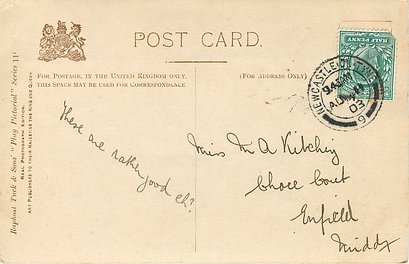 POST CARD.
FOR POSTAGE, IN THE UNITED KINGDOM ONLY,
THIS SPACE MAY BE USED FOR CORRESPONDENCE
(FOR ADDRESS ONLY)
HALF PENNY
NEWCASTLE ON TYNE
03
9
Raphael Tuck & Sons' "Play Pictorial" Series 11
REAL PHOTOGRAPH EDITION
ART PUBLISHERS TO THEIR MAJESTIES THE KING AND QUEEN
These are rather
good eh?
Miss M A Kitching
Chace Court
Enfield
Middx